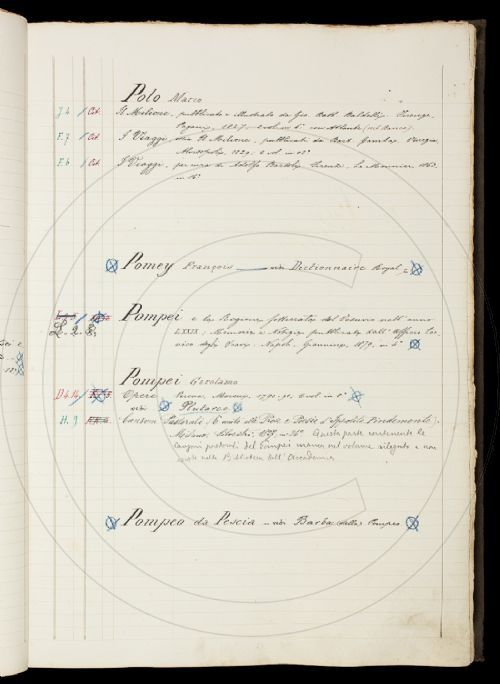 Polo Marco
F. 4 Cit. Il Milione, pubblicato e illustrato da Gio. Batt. Baldelli. Firenze,
Pagani, 1827, 2 vol. in 4° con Atlante (nel Banco)
F. 7 Cit. I Viaggi, o sia Il Milione, pubblicati da Bart. Gamba. Venezia,
Alvisopoli, 1829, 2 vol. in 12°
F. 6 Cit. I Viaggi, per cura di Adolfo Bartoli. Firenze, Le Monnier, 1863,
in 16°
Pomey François vedi Dictionnaire Royal
L. 2. Pompei e la Regione sotterrata dal Vesuvio nell'anno
LXXIX; Memorie e Notizie pubblicate dall'Ufficio tec-
nico degli Scavi. Napoli, Giannini, 1879, in 4°
Pompei Girolamo
D 4.14 Opere. Verona, Moroni, 1790-91, 6 vol. in 8°
vedi Plutarco
H. 9 Canzoni Pastorali, (unite alle Prose e Poesie d'Ippolito Pindemonte).
Milano, Silvestri, in 16° Questa parte contenente le
Canzoni pastorali del Pompei manca nel volume allegato e non
esiste nella Biblioteca dell'Accademia
Pompeo da Pescia vedi Barba (dalla) Pompeo